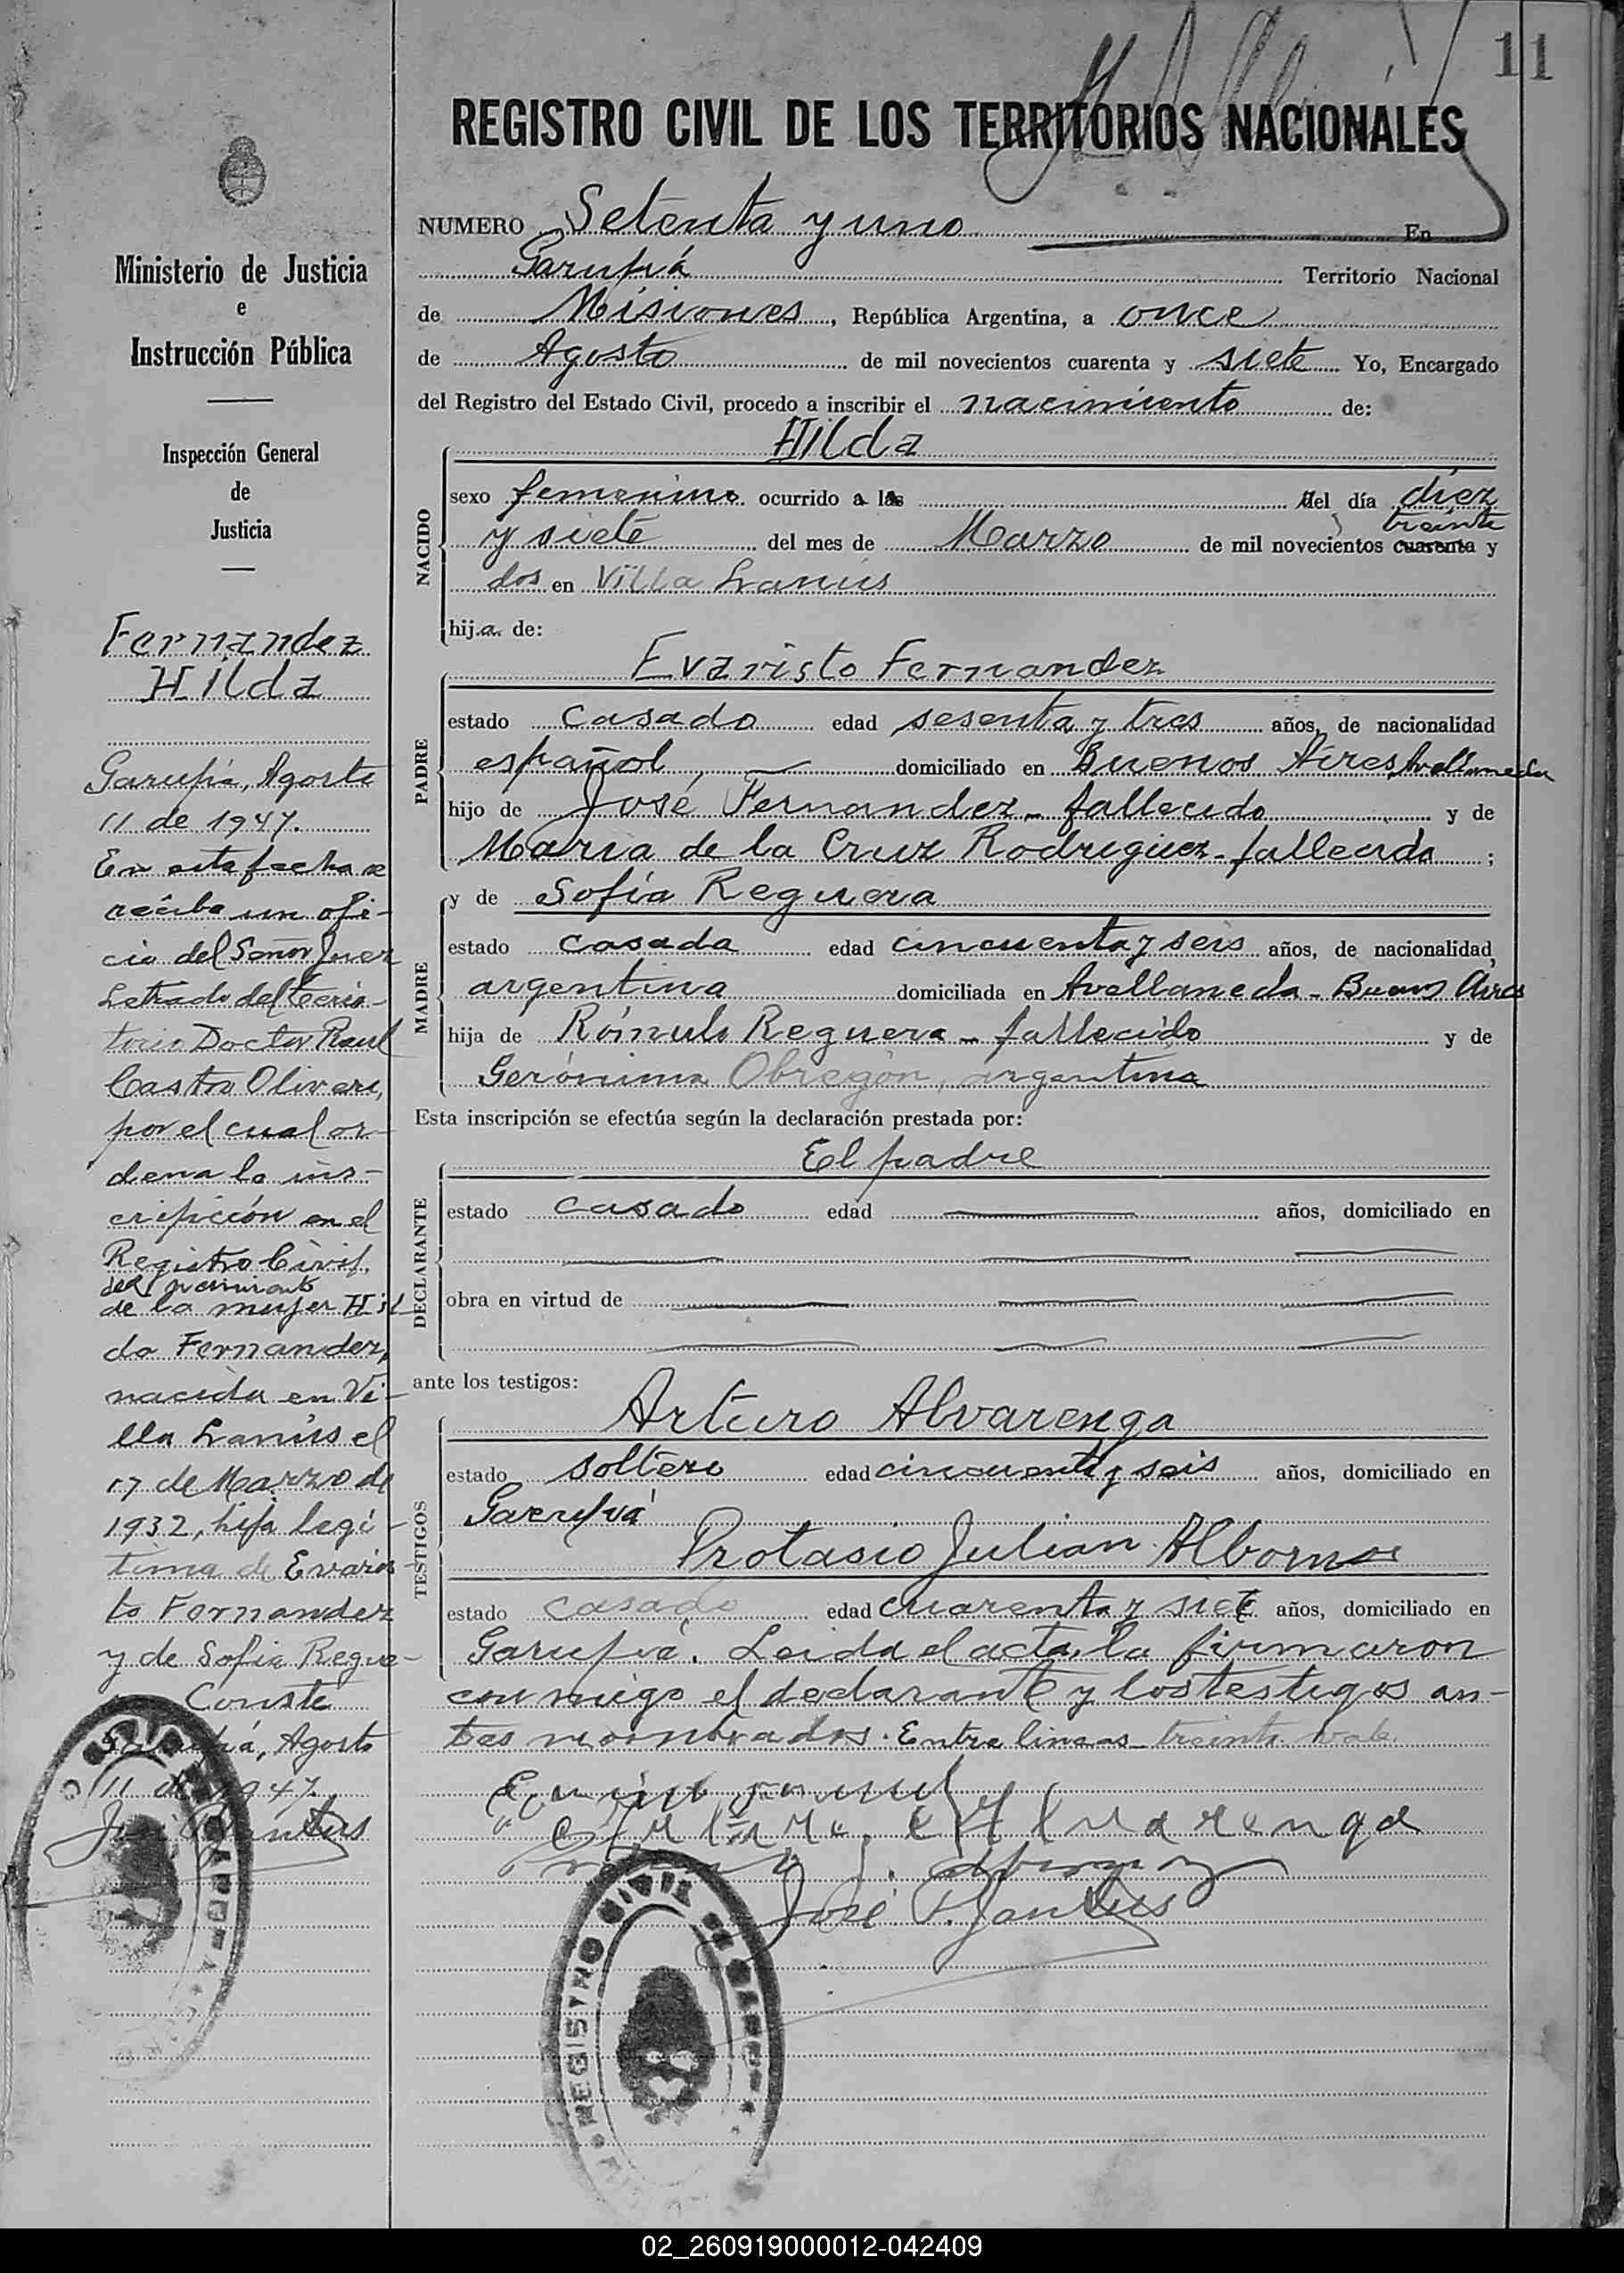 11
REGISTRO CIVIL DE LOS TERRITORIOS NACIONALES
Ministerio de Justicia
e
Instrucción Pública
Inspección General
de
Justicia
Fernandez
Hilda
Garupá, Agosto
11 de 1947.
En esta fecha se
recibe un ofi-
cio del Señor Juez
Letrado del Terri-
torio Doctor Raul
Castro Olivera,
por el cual or-
dena la ins-
cripción en el
Registro Civil,
del nacimiento
de la mujer Hil-
da Fernandez,
nacida en Vi-
lla Lanús el
17 de Marzo de
1932, hija legi-
tima de Evaris-
to Fernandez
y de Sofia Regue-
Conste
Agosto
11 de 1947.
NUMERO Setenta y uno En
Garupá Territorio Nacional
de Misiones, República Argentina, a once
de Agosto de mil novecientos cuarenta y siete Yo, Encargado
del Registro del Estado Civil, procedo a inscribir el nacimiento de:
NACIDO
Hilda
sexo femenino ocurrido a las del día diez
treinta
y siete del mes de Marzo de mil novecientos cuarenta y
dos en Villa Lanús
hija de:
PADRE
Evaristo Fernandez
estado casado edad sesenta y tres años, de nacionalidad
español domiciliado en Buenos Aires, Avellaneda
hijo de José Fernandez - fallecido y de
Maria de la Cruz Rodriguez - fallecida ;
MADRE
y de Sofía Reguera
estado casada edad cincuenta y seis años, de nacionalidad,
argentina domiciliada en Avellaneda - Buenos Aires
hija de Rómulo Reguera - fallecido y de
Gerónima Obregón, argentina
Esta inscripción se efectúa según la declaración prestada por:
DECLARANTE
El padre
estado casado edad años, domiciliado en
obra en virtud de
ante los testigos:
TESTIGOS
Arturo Alvarenga
estado soltero edad cincuenta y seis años, domiciliado en
Garupá
Protasio Julian Albornoz
estado casado edad cuarenta y siete años, domiciliado en
Garupá. Leida el acta, la firmaron
conmigo el declarante y los testigos an-
tes nombrados. Entre lineas - treinta vale
Arturo Alvarenga
José
REGISTRO CIVIL
02_260919000012-042409